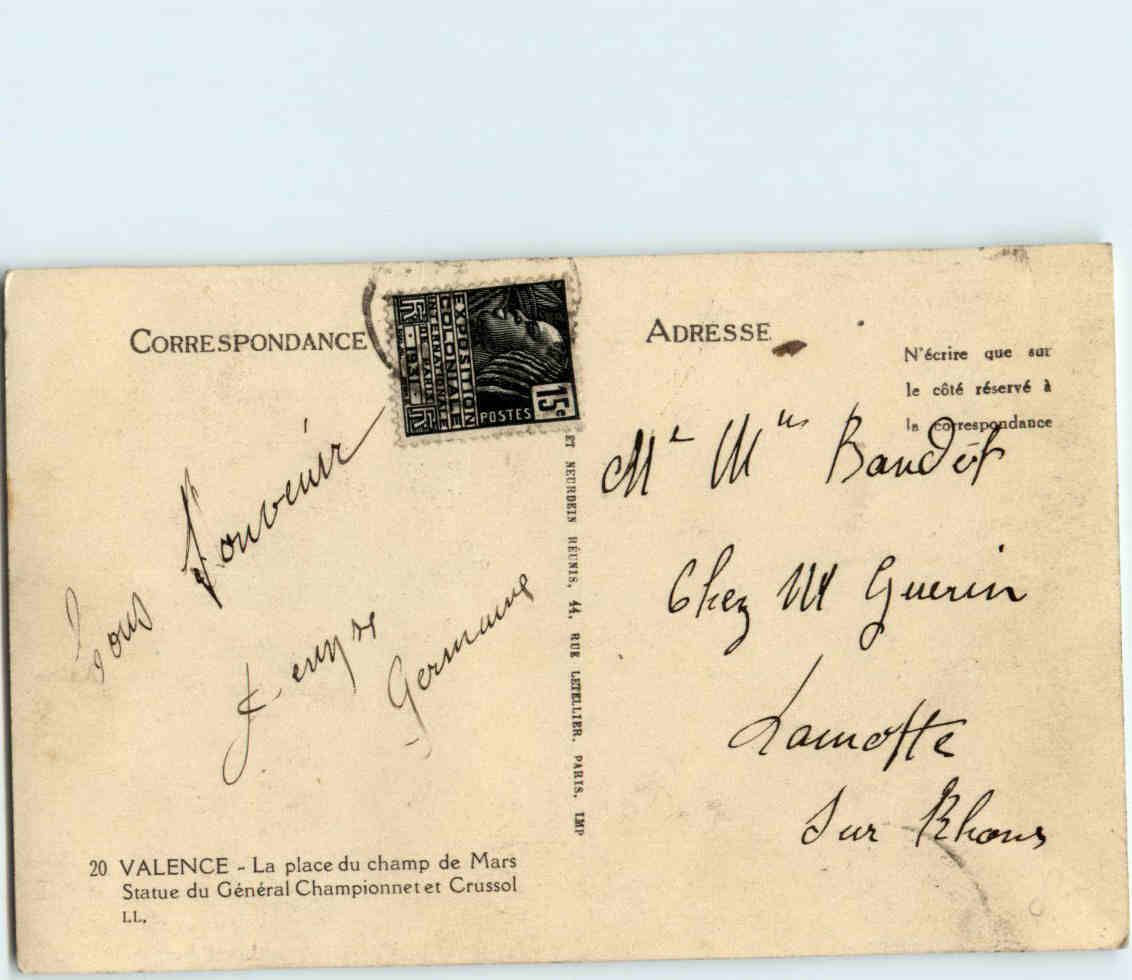 CORRESPONDANCE
EXPOSITION
COLONIALE
INTERNATIONALE
PARIS 1931
POSTES
15c
ADRESSE
N'écrire que sur
le côté réservé à
la correspondance
Bons Souvenir
Germaine
ET NEURDEIN RÉUNIS, 44, RUE LETELLIER, PARIS, IMP
Mr Mme Baudet
Chez M Guerin
Lamotte
Sur Rhone
20 VALENCE - La place du champ de Mars
Statue du Général Championnet et Crussol
LL.